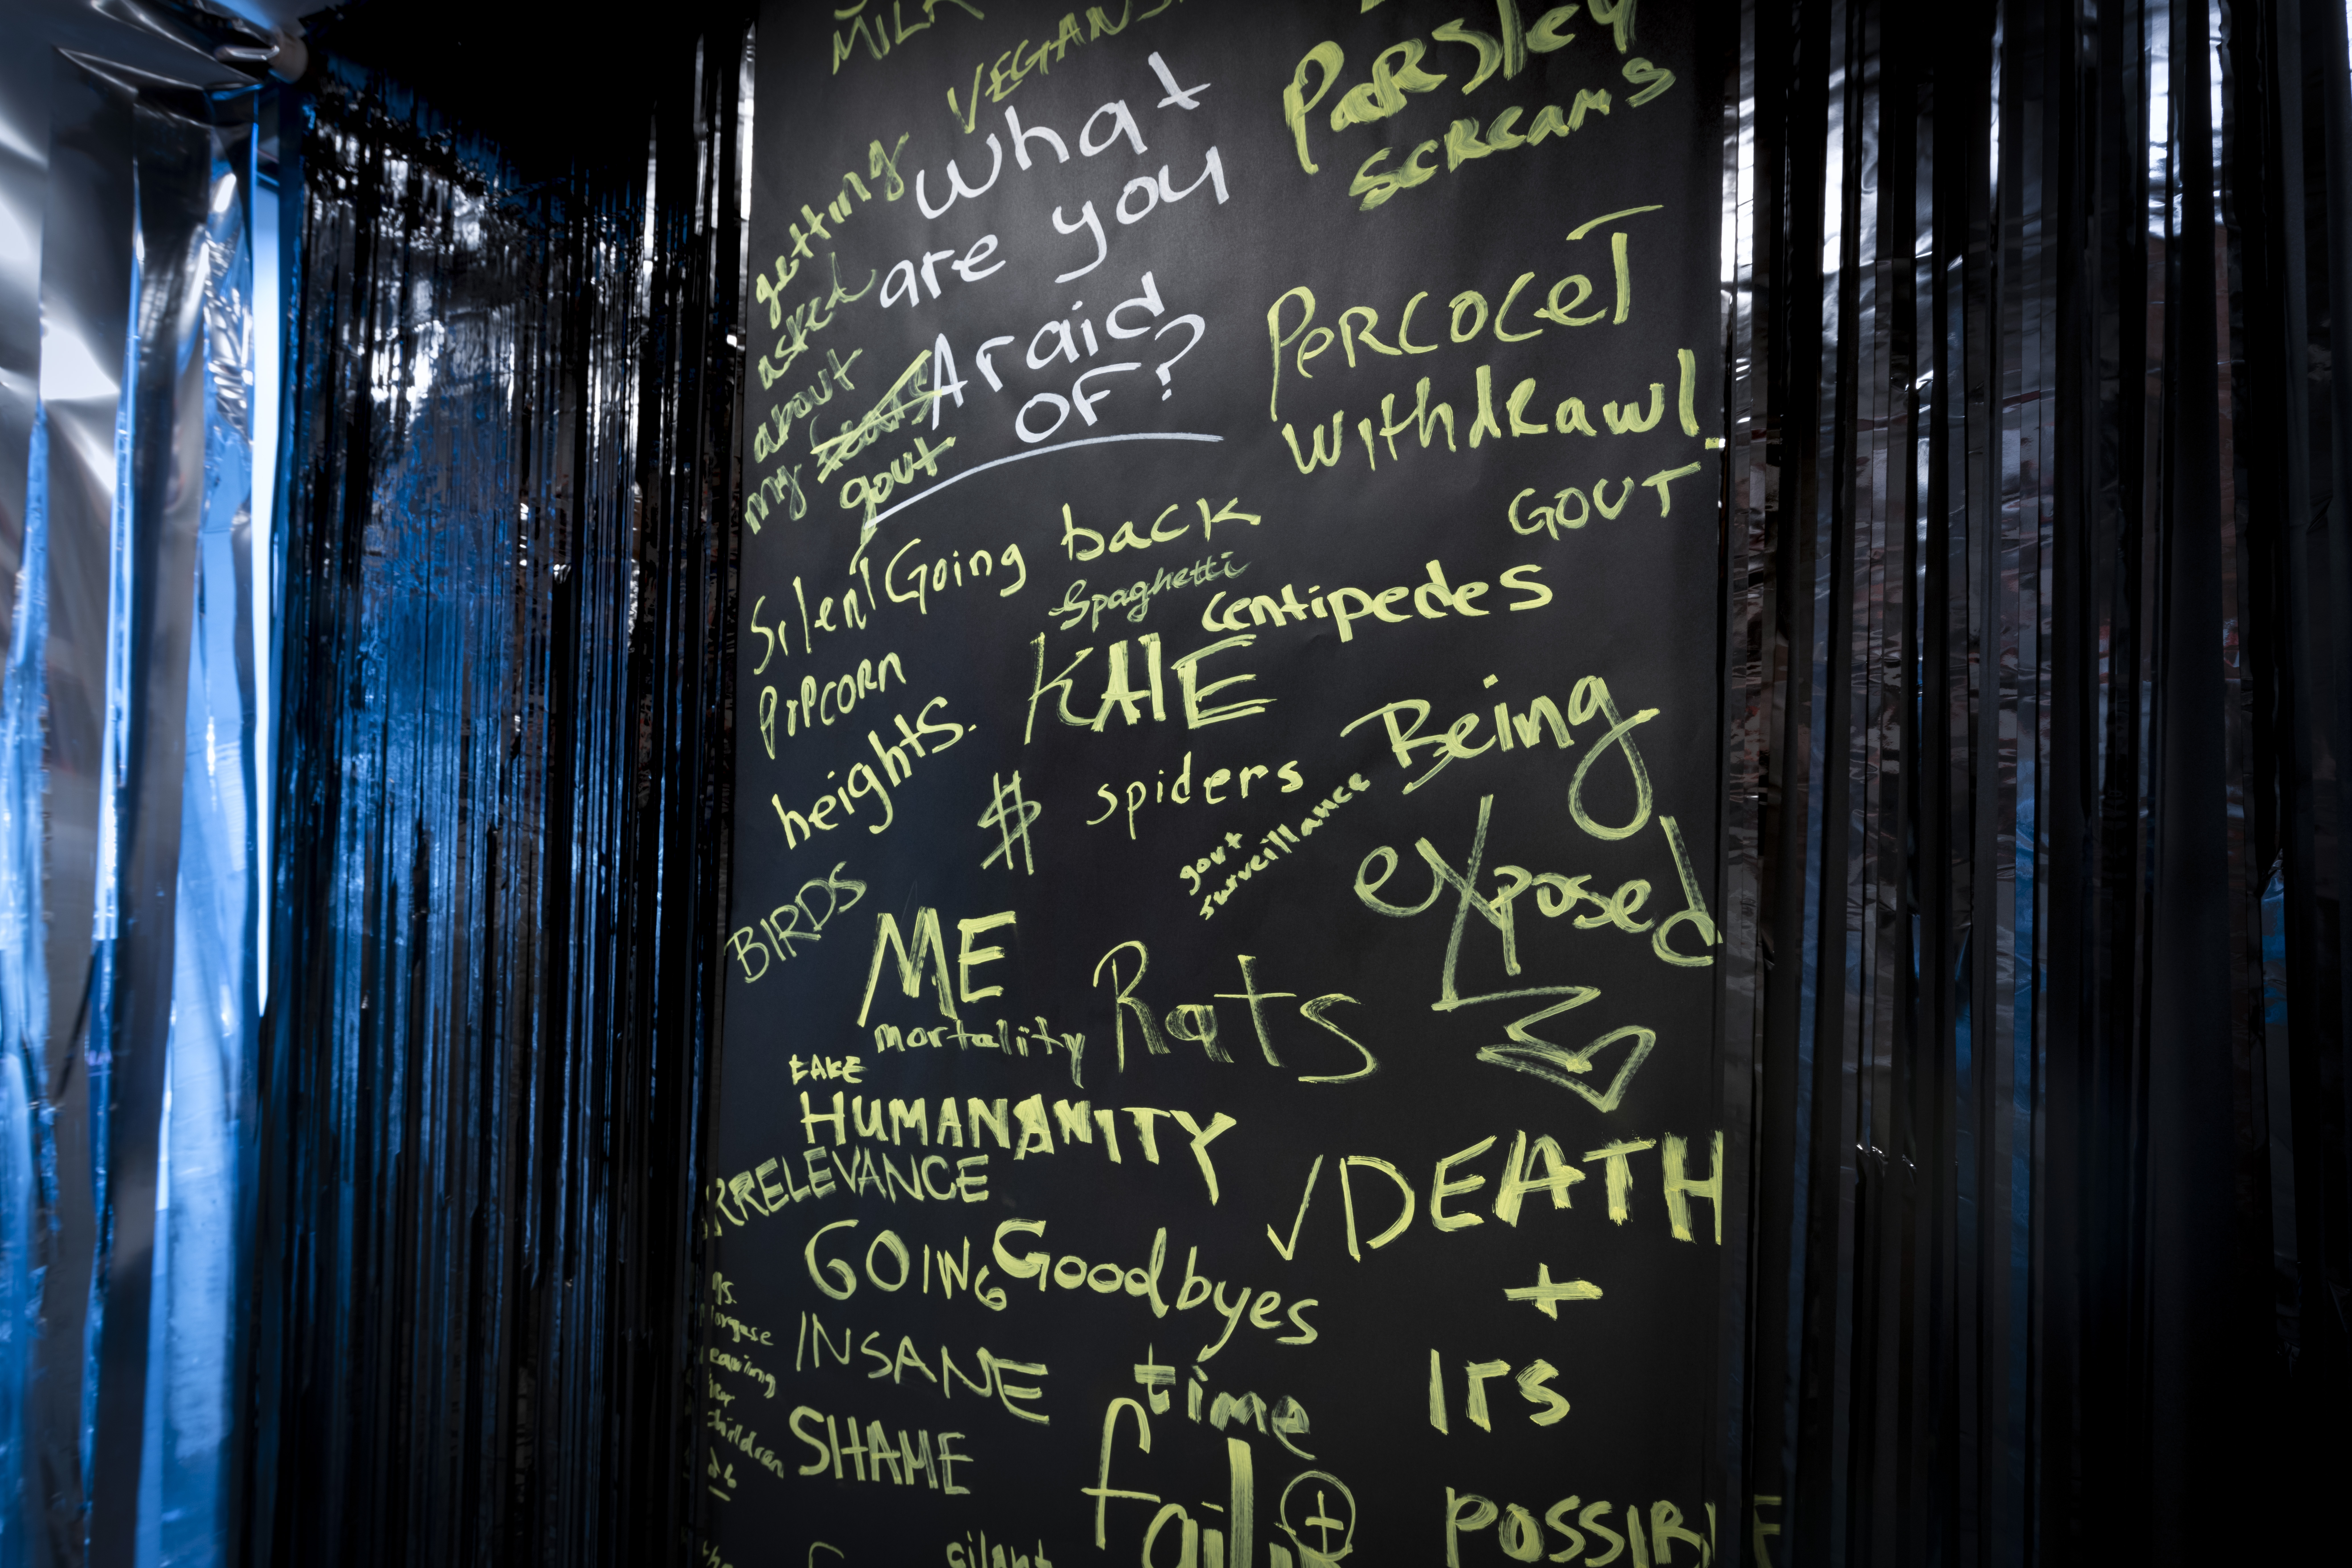 MILK
VEGANS
What
are you
Araid
OF?
getting
asked
about
my
gout
Parsley
screams
Percocet
withdrawl.
GOUT
Going back
Spaghetti
centipedes
Silent
POPCORN
heights.
KALE
$ spiders
Being
exposed
govt
surveillance
BIRDS
ME
mortality
Rats
FAKE
HUMANANITY
IRRELEVANCE
√DEATH
+
Irs
GOING
INSANE
Goodbyes
time
SHAME
children
silent
POSSIBLE